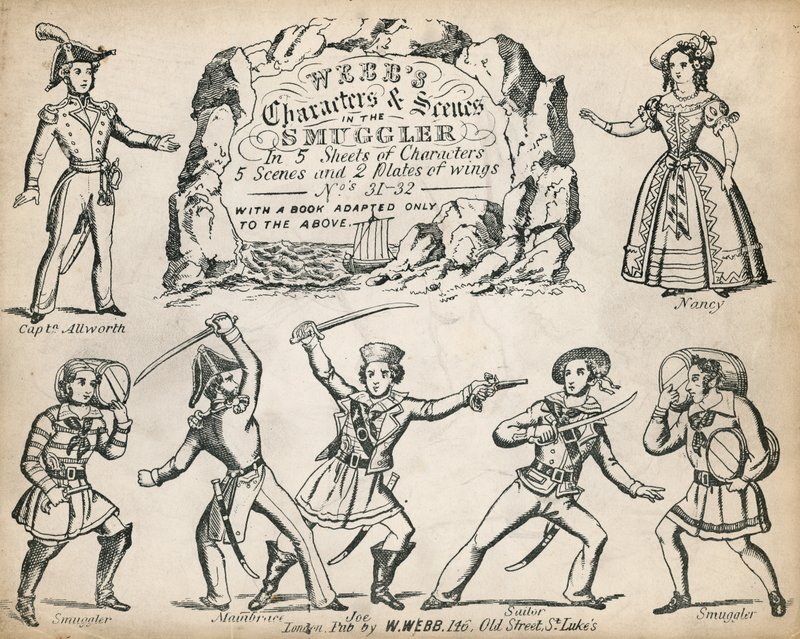 WEBB'S
Characters & Scenes
IN THE
SMUGGLER
In 5 Sheets of Characters
5 Scenes and 2 Plates of wings
No's 31-32
WITH A BOOK ADAPTED ONLY
TO THE ABOVE.
Captn Allworth
Nancy
Smuggler
Mainbrace
Joe
Sailor
Smuggler
London, Pub by W. WEBB. 146, Old Street, St Luke's